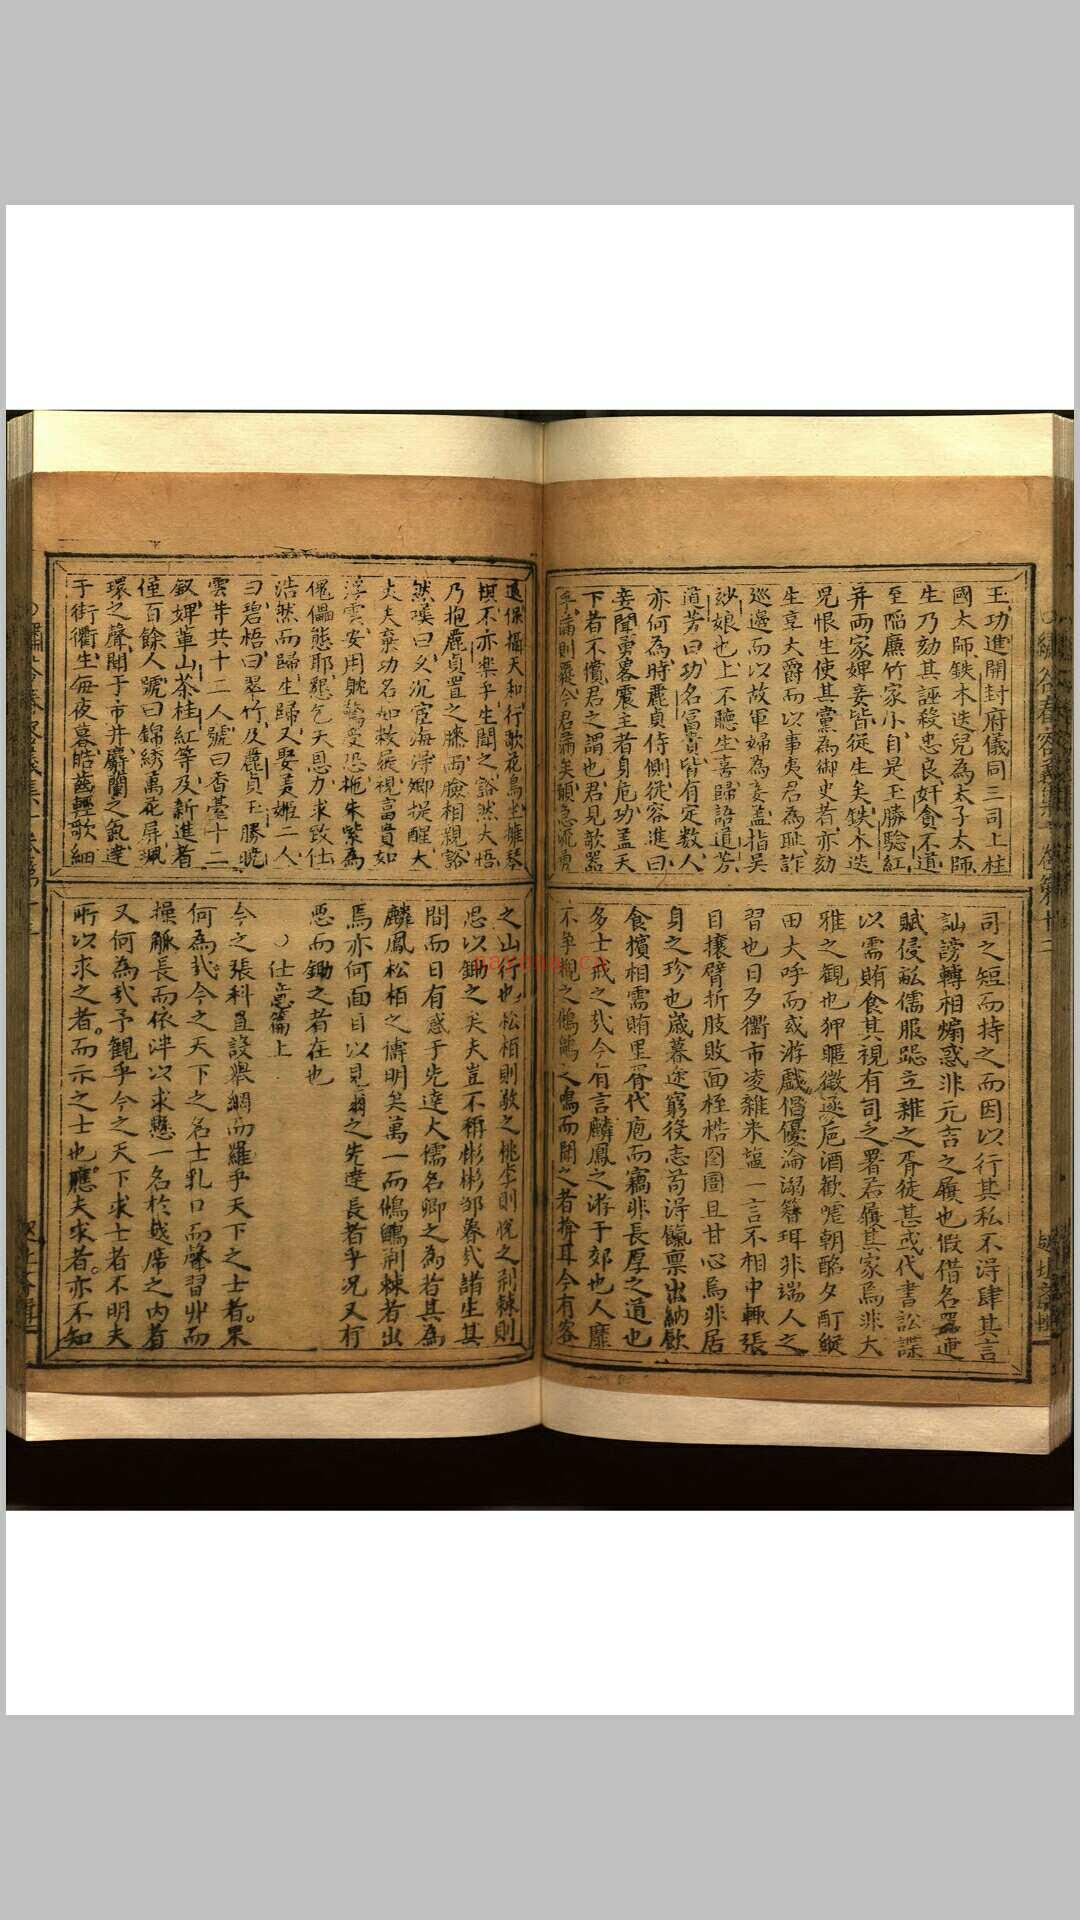 王功進開封府儀同三司上柱
國太師鉄木迭兒為太子太師
生乃劾其誣殺忠良奸貪不道
至陷廉竹家小自是玉勝驗紅
并兩家婢妾皆從生矣鉄木迭
兒恨生使其黨為御史者亦劾
生享大爵而以事夷君為耻詐
巡邊而以故軍婦為妾盖指吳
妙娘也上不聽生喜歸語道芳
道芳曰功名冨貴皆有定数人
亦何為時麗貞侍側從容進曰
妾聞勇畧震主者身危功盖天
下者不償君之謂也君見欹器
乎滿則覆今君滿矣願急流勇
退保攝天和行歌花鳥坐擁琴
棋不亦樂乎生聞之豁然大悟
乃抱麗貞置之膝而臉相親豁
然嘆曰久沉宦海淂卿提醒大
丈夫棄功名如敝屣視富貴如
浮雲安用躭驚受恐拖朱紫為
傀儡態耶懇乞天恩力求致仕
浩然而歸生歸又娶美姬二人
曰碧梧曰翠竹及麗貞玉勝曉
雲等共十二人號曰香臺十二
釵婢輩山茶桂紅等及新進者
僅百餘人號曰錦綉萬花屏珮
環之聲聞于市井麝蘭之氣達
于街衢生每夜暮皓齒輕歌細
司之短而持之而因以行其私不淂肆其言
訕謗轉相煽惑非元吉之履也假借名器逋
賦侵訟儒服跽立雜之胥徒甚或代書訟諜
以需賄食其視有司之署若履其家焉非大
雅之觀也狎暱徵逐巵酒歡嘑朝酩夕酊縱
田大呼而或游戲倡優淪溺簪珥非端人之
習也日夕衢市凌雜米塩一言不相中輒張
目攘臂折肢敗面桎梏囹圄且甘心焉非居
身之珍也嵗暮途窮役志苟淂饘禀出納歛
食擯相需賄里胥代庖而竊非長厚之道也
多士戒之㢤今有言麟鳳之游于郊也人靡
不争覩之鵂鶹之鳴而聞之者揜耳今有客
之山行也松栢則敬之桃李則悅之荆棘則
思以鋤之矣夫豈不稱彬彬鄒魯㢤諸生其
間而日有感于先達大儒名卿之為者其為
麟鳳松栢之儔明矣萬一而鵂鶹荆棘者出
焉亦何面目以見翁之先達長者乎况又有
惡而鋤之者在也
仕意篇上
今之張科置設舉綱而羅乎天下之士者果
何為㢤今之天下之名士乳口而聲習丱而
操觚長而依泮以求懸一名於越席之内者
又何為㢤予観乎今之天下求士者不明夫
所以求之者而示之士也應夫求者亦不知